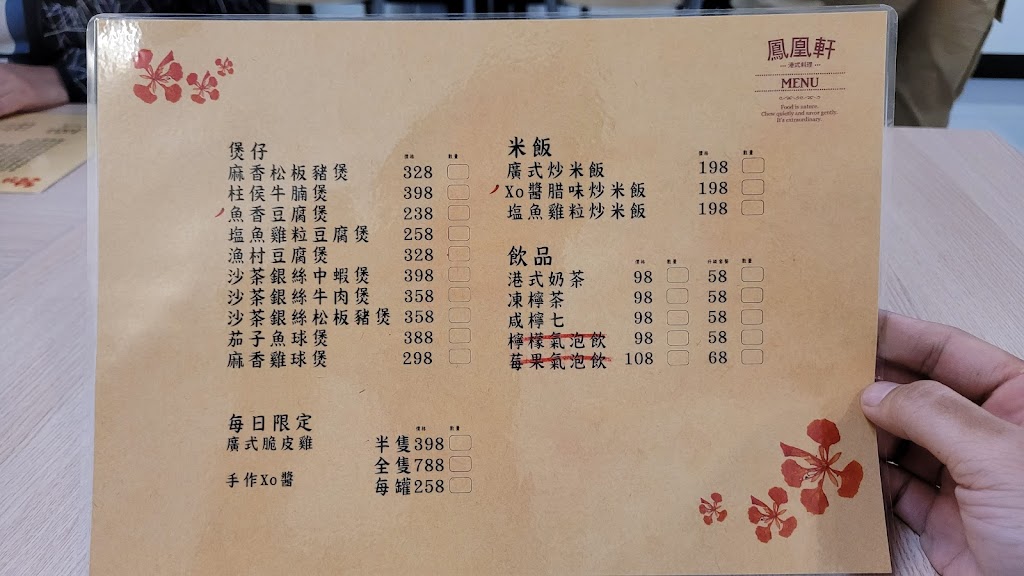 鳳凰軒
港式料理
MENU
Food is nature.
Chew quietly and savor gently.
It's extraordinary.
煲仔 價格 數量
麻香松板豬煲 328
柱侯牛腩煲 398
魚香豆腐煲 238
塩魚雞粒豆腐煲 258
漁村豆腐煲 328
沙茶銀絲中蝦煲 398
沙茶銀絲牛肉煲 358
沙茶銀絲松板豬煲 358
茄子魚球煲 388
麻香雞球煲 298
每日限定 價格 數量
廣式脆皮雞 半隻 398
全隻 788
手作Xo醬 每罐 258
米飯 價格 數量
廣式炒米飯 198
Xo醬腊味炒米飯 198
塩魚雞粒炒米飯 198
飲品 價格 數量 數量
港式奶茶 98 58
凍檸茶 98 58
咸檸七 98 58
檸檬氣泡飲 98 58
莓果氣泡飲 108 68